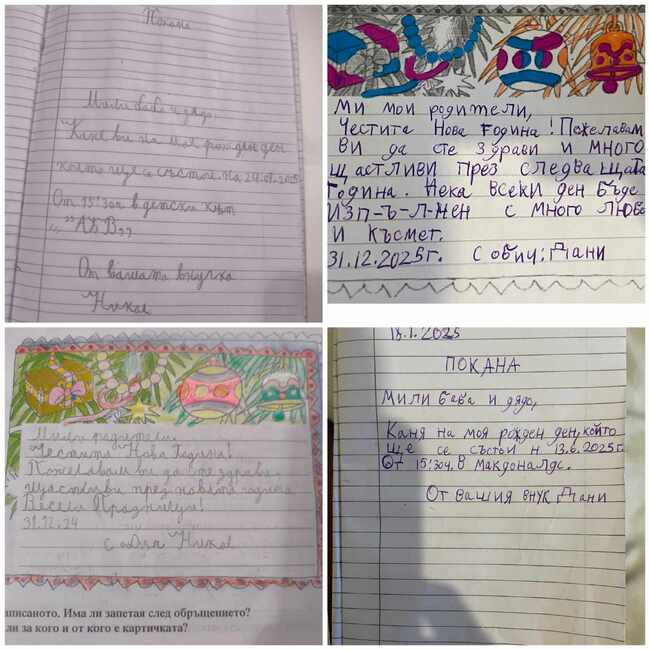 Покана
Мили бабо и дядо,
Каня ви на моя рожден ден
който ще се състой на 24.01.2025г.
От 15:30ч в детски кът
„АБВ"
От вашата внучка
Никол
Ми мои родители,
Честита Нова Година! Пожелавам
ви да сте здрави и много
щастливи през следващата
Година. Нека всеки ден бъде
ИЗП-Ъ-Л-Мен с много любов
и късмет.
31.12.2025г. С обич: Дани
Мили родители,
Честита Нова Година!
Пожелавам ви да сте здрави и
щастливи през новата година
Весели Празници!
31.12.24
с обич Никол
написаното. Има ли запетая след обръщението?
ли за кого и от кого е картичката?
18.1.2025
ПОКАНА
Мили баба и дядо,
Каня на моя рожден ден, който
ще се състои н 13.6.2025г.
От 15:30ч. в Макдоналдс.
От вашия внук Дани